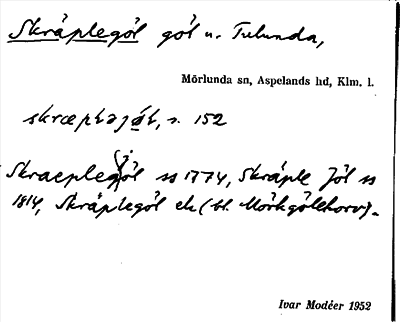 Skräplegöl göl u. Tulunda,
Mörlunda sn, Aspelands hd, Klm. l.
s. 152
Skraeplegöl ss 1774, Skräple Jöl ss
1814, Skräplegöl ek (bl. Mörkgölehorv).
Ivar Modéer 1952